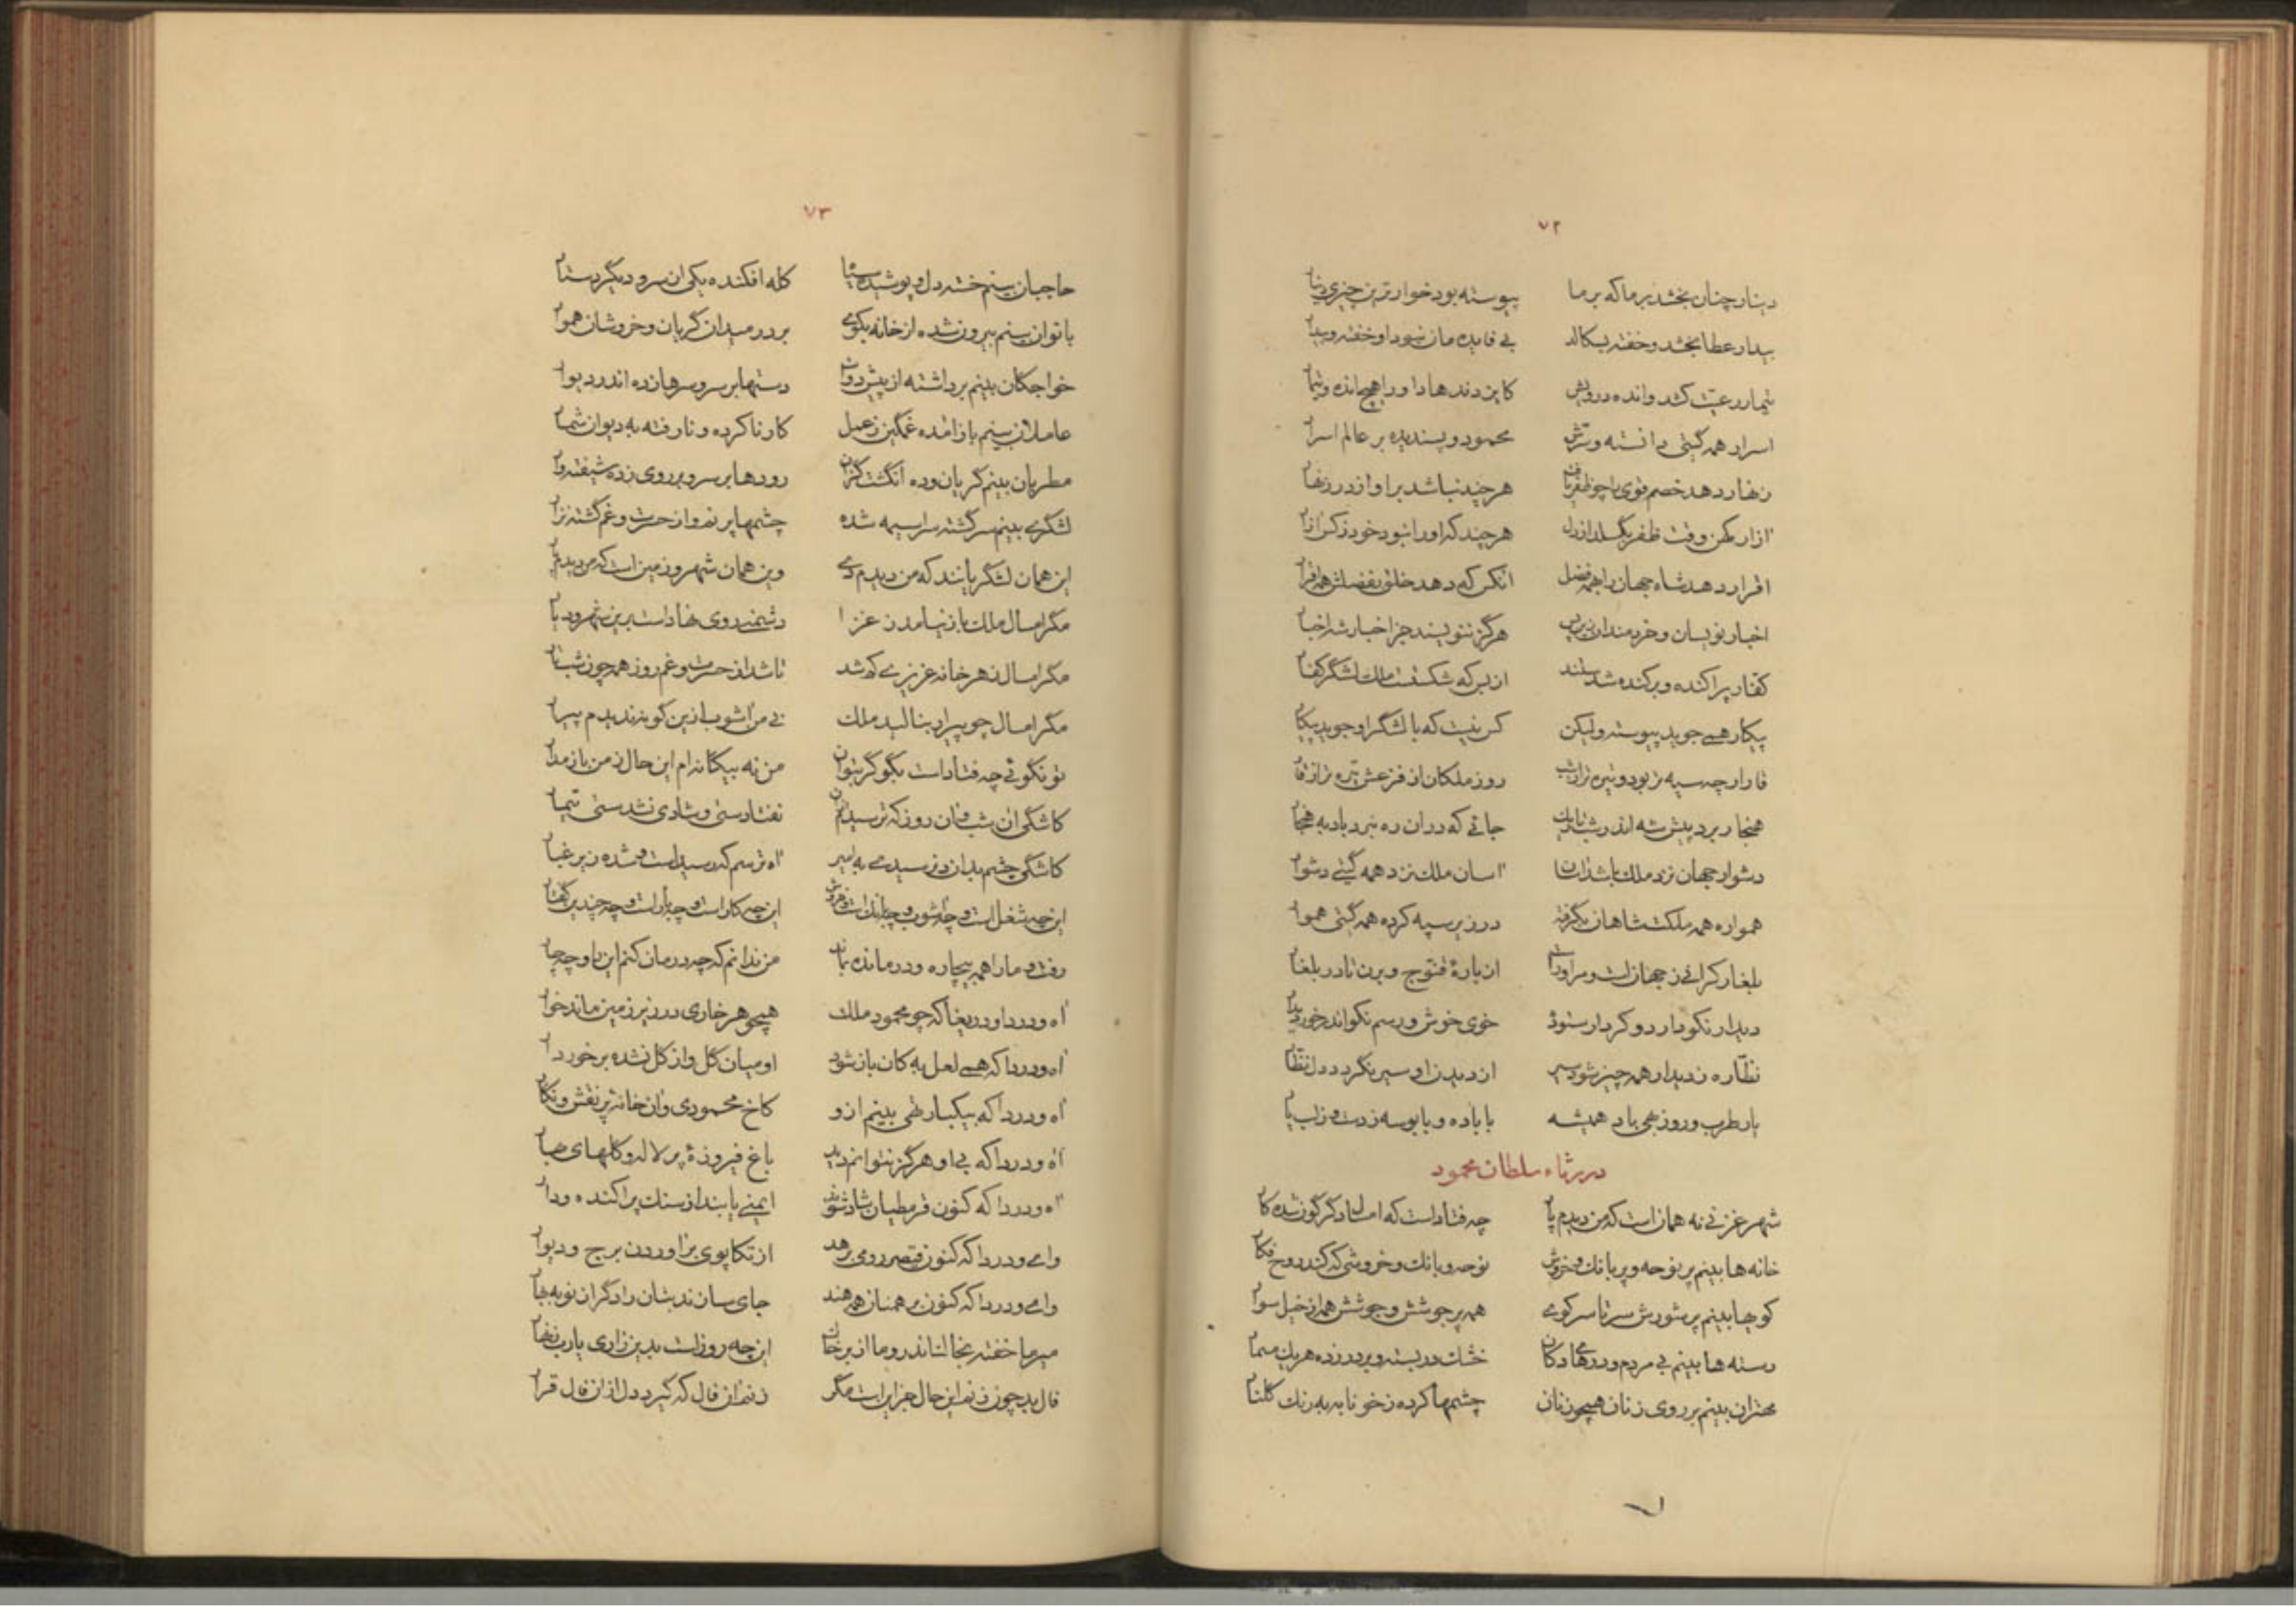 ۷۲
دینار چنان بخشد بر ما که بر ما پیوسته بود خوارترین چیزی دینار
بیدار عطا بخشد و خفته بسکالد بی فایده مان نبود او خفته و بیدار
تیمار رعیت کشد و انده درویش کایزد ندهادا ورا هیچ انده و تیمار
اسرار همه گیتی دانسته و سرش محمود و پسندیده بر عالم اسرار
زنهار دهد خصم قوی را چو ظفر یافت هر چند نباشد بر او از در زنهار
آزار بمکن وقت ظفر بگسلد از دل هر چند که او را نبود خود ز کس آزار
اقرار دهد شاه جهان را همه فضل آنکس که دهد خلق بفضلش همه اقرار
اخبار نویسان و خردمندان زین پس هرگز ننویسند جز اخبار شه اخبار
کفتار پراکنده و برکنده شد سلند از بس که شکست ملک لشگر کفتار
پیکار همی جوید پیوسته ولیکن کس نیست که با لشگر او جوید پیکار
قار ار چه سیه تر بود و تیره تر از شب روز ملکان از فزعش تیره تر از قار
هنجار برد پیش شه اندر شب تاریک جائی که در آن ره نبرد باد به هنجار
دشوار جهان نزد ملک باشد آسان آسان ملک نزد همه گیتی دشوار
همواره همه مملکت شاهان بگرفته در زیر سپه کرده همه گیتی هموار
بلغار کرائی ز جهان است و مر او راست از باره قنوج و برن تا در بلغار
دیدار نکو دارد و کردار ستوده خوی خوش و رسم نکو اندر خور دیدار
نظاره ز دیدار همه چیز شود سیر از دیدن او سیر نگردد دل نظار
یار طرب و روز بهی باد همیشه با باده و با بوسه ز دست و ز لب یار
در رثاء سلطان محمود
شهر غزنی نه همان است که من دیدم پار چه فتاد است که امسال دگر گون شده کار
خانه ها بینم پر نوحه و پر بانک و خروش نوحه و بانک و خروشی که کند روح فکار
کوچها بینم پر شورش سر تا سر کوی همه پر جوشش و جوشش همه از خیل سوار
رسته ها بینم بی مردم و درهای دکان خشت در بسته و بر در زده هر یک مسمار
مهتران بینم بر روی زنان همچو زنان چشمها کرده ز خونابه به رنک گلنار
۷۳
حاجبان بینم خسته دل و پوشیده سیاه کله افکنده یکی از سر و دیگر دستار
بانوان بینم بیرون شده از خانه بکوی بر در میدان گریان و خروشان هموار
خواجگان بینم برداشته از پیش دوات دستها بر سر و سرها زده اندر دیوار
عاملان بینم باز آمده غمگین ز عمل کار ناکرده و نارفته به دیوان شمار
مطربان بینم گریان و ده انگشت گزان رودها بر سر و بر روی زده شیفته وار
لشگری بینم سر گشته سراسیمه شده چشمها پر نم و از حسرت و غم گشته نزار
این همان لشگریانند که من دیدم دی وین همان شهر و زمین است که من دیدم پار
مگر امسال ملک باز نیامد ز غزا دشمنی روی نهاد است برین شهر و دیار
مگر امسال ز هر خانه عزیزی کم شد تا شد از حسرت و غم روز همه چون شب تار
مگر امسال چو پیرار بنالید ملک نی من آشوب ازین گونه ندیدم پیرار
تو نگوئی چه فتاد است بگو گر بتوان من نه بیگانه ام این حال ز من باز مدار
کاشکی آن شب و آن روز که ترسیدم از آن نفتادستی و شادی نشدستی تیمار
کاشگی چشم بد اندر نرسیدی به امیر آه ترسم که رسید است و شده زیر غبار
این چه شغل است و چه آشوب و چه بانک است و خروش این چه کار است و چه بار است و چه چندین گفتار
رفت و ما را همه بیچاره و درمانده بماند من ندانم که چه درمان کنم این را و چه چار
آه و دردا و دریغا که چو محمود ملک همچو هر خاری در زیر زمین ماند خوار
آه و دردا که همی لعل به کان باز شود او میان گل و از گل نشده برخوردار
آه و دردا که بیکبار تهی بینم ازو کاخ محمودی و آن خانه پر نقش و نگار
آه و دردا که بی او هرگز نتوانم دید باغ فیروزه پر لاله و گلهای ببار
آه و دردا که کنون قرمطیان شاد شوند ایمنی یابند از سنک پراکنده و دار
وای و دردا که کنون قیصر رومی برهد از تکاپوی برآوردن برج و دیوار
وای و دردا که کنون برهمنان همه هند جای سازند بتان را دگر از نو به بهار
میر ما خفته بخاک اندر و ما از بر خاک این چه روز است بدین زاری یارب زنهار
فال بد چون زنم این حال جز این است مگر زنم آن فال که گیرد دل از آن فال قرار